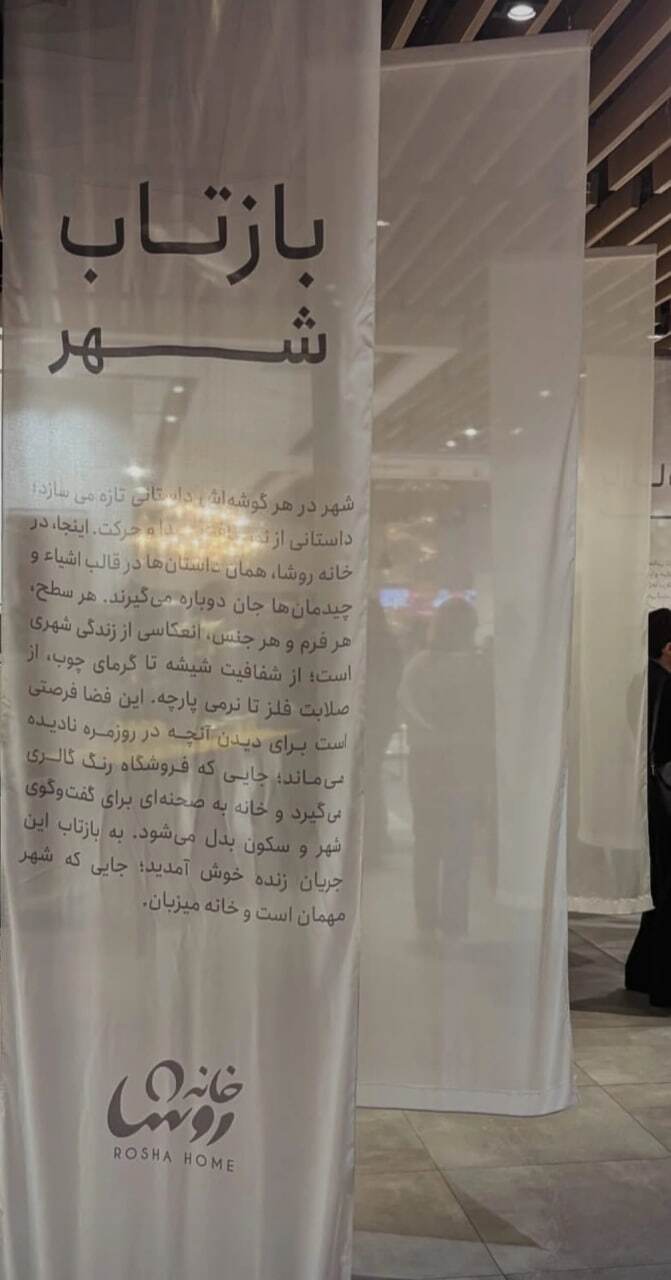 بازتاب
شهر
شهر در هر گوشه‌اش داستانی تازه می سازد؛
داستانی از و حرکت. اینجا، در
خانه روشا، همان داستان‌ها در قالب اشیاء و
چیدمان‌ها جان دوباره می‌گیرند. هر سطح،
هر فرم و هر جنس، انعکاسی از زندگی شهری
است؛ از شفافیت شیشه تا گرمای چوب، از
صلابت فلز تا نرمی پارچه. این فضا فرصتی
است برای دیدن آنچه در روزمره نادیده
می‌ماند؛ جایی که فروشگاه رنگ گالری
می‌گیرد و خانه به صحنه‌ای برای گفت‌وگوی
شهر و سکون بدل می‌شود. به بازتاب این
جریان زنده خوش آمدید؛ جایی که شهر
مهمان است و خانه میزبان.
خانه
روشا
ROSHA HOME